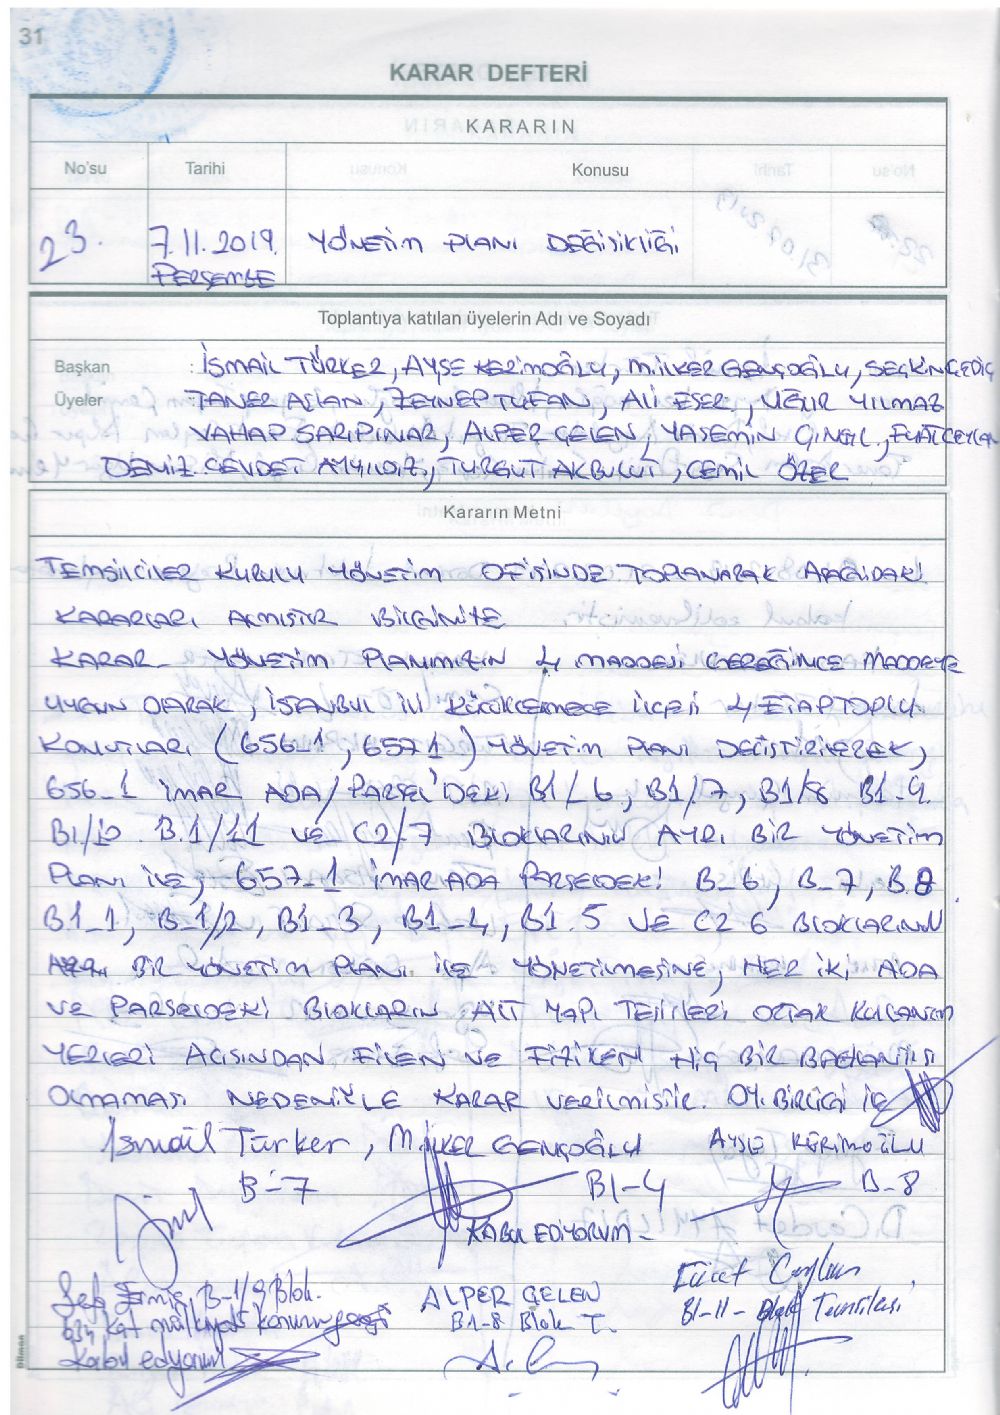 31
KARAR DEFTERİ
KARARIN
No'su Tarihi Konusu
23. 7.11.2019 YÖNETİM PLANI DEĞİŞİKLİĞİ
PERŞEMBE
Toplantıya katılan üyelerin Adı ve Soyadı
Başkan : İSMAİL TÜRKER, AYŞE KERİMOĞLU, M.İLKER GENÇOĞLU, SEÇKİN GEDİÇ
Üyeler TANER ASLAN, ZEYNEP TUFAN, ALİ ESER, UĞUR YILMAZ
VAHAP SARIPINAR, ALPER GELEN, YASEMİN ÇINGIL, FUAT CEYLAN
DENİZ CEVDET AYYILDIZ, TURGUT AKBULUT, CEMİL ÖZER
Kararın Metni
TEMSİLCİLER KURULU YÖNETİM OFİSİNDE TOPLANARAK AŞAĞIDAKİ
KARARLARI ALMIŞTIR BİLGİNİZE
KARAR - YÖNETİM PLANIMIZIN 4 MADDESİ GEREĞİNCE MADDEYE
UYGUN OLARAK, İSTANBUL İLİ KÜÇÜKÇEKMECE İLÇESİ 4 ETAP TOPLU
KONUTLARI (656-1, 657 1) YÖNETİM PLANI DEĞİŞTİRİLEREK,
656-1 İMAR ADA/PARSEL'DEKİ B1/6, B1/7, B1/8 B1-9.
B1/10 B.1/11 VE C2/7 BLOKLARININ AYRI BİR YÖNETİM
PLANI İLE, 657-1 İMAR ADA PARSELDEKİ B-6, B-7, B.8
B1-1, B-1/2, B1-3, B1-4, B1.5 VE C2 6 BLOKLARININ
BİR YÖNETİM PLANI İLE YÖNETİLMESİNE, HER İKİ ADA
VE PARSELDEKİ BLOKLARIN ALT YAPI TESİSLERİ ORTAK KULLANIM
YERLERİ AÇISINDAN FİİLEN VE FİZİKEN HİÇ BİR BAĞLANTISI
OLMAMASI NEDENİYLE KARAR VERİLMİŞTİR. OY BİRLİĞİ İLE
İsmail Türker, M.İLKER GENÇOĞLU AYŞE KERİMOĞLU
B-7 B1-4 B-8
KABUL EDİYORUM -
B-1/9 Blok. ALPER GELEN
634 Kat mülkiyeti kanunu B1-8 Blok T. B1-11- Blok Temsilcisi
Kabul ediyorum